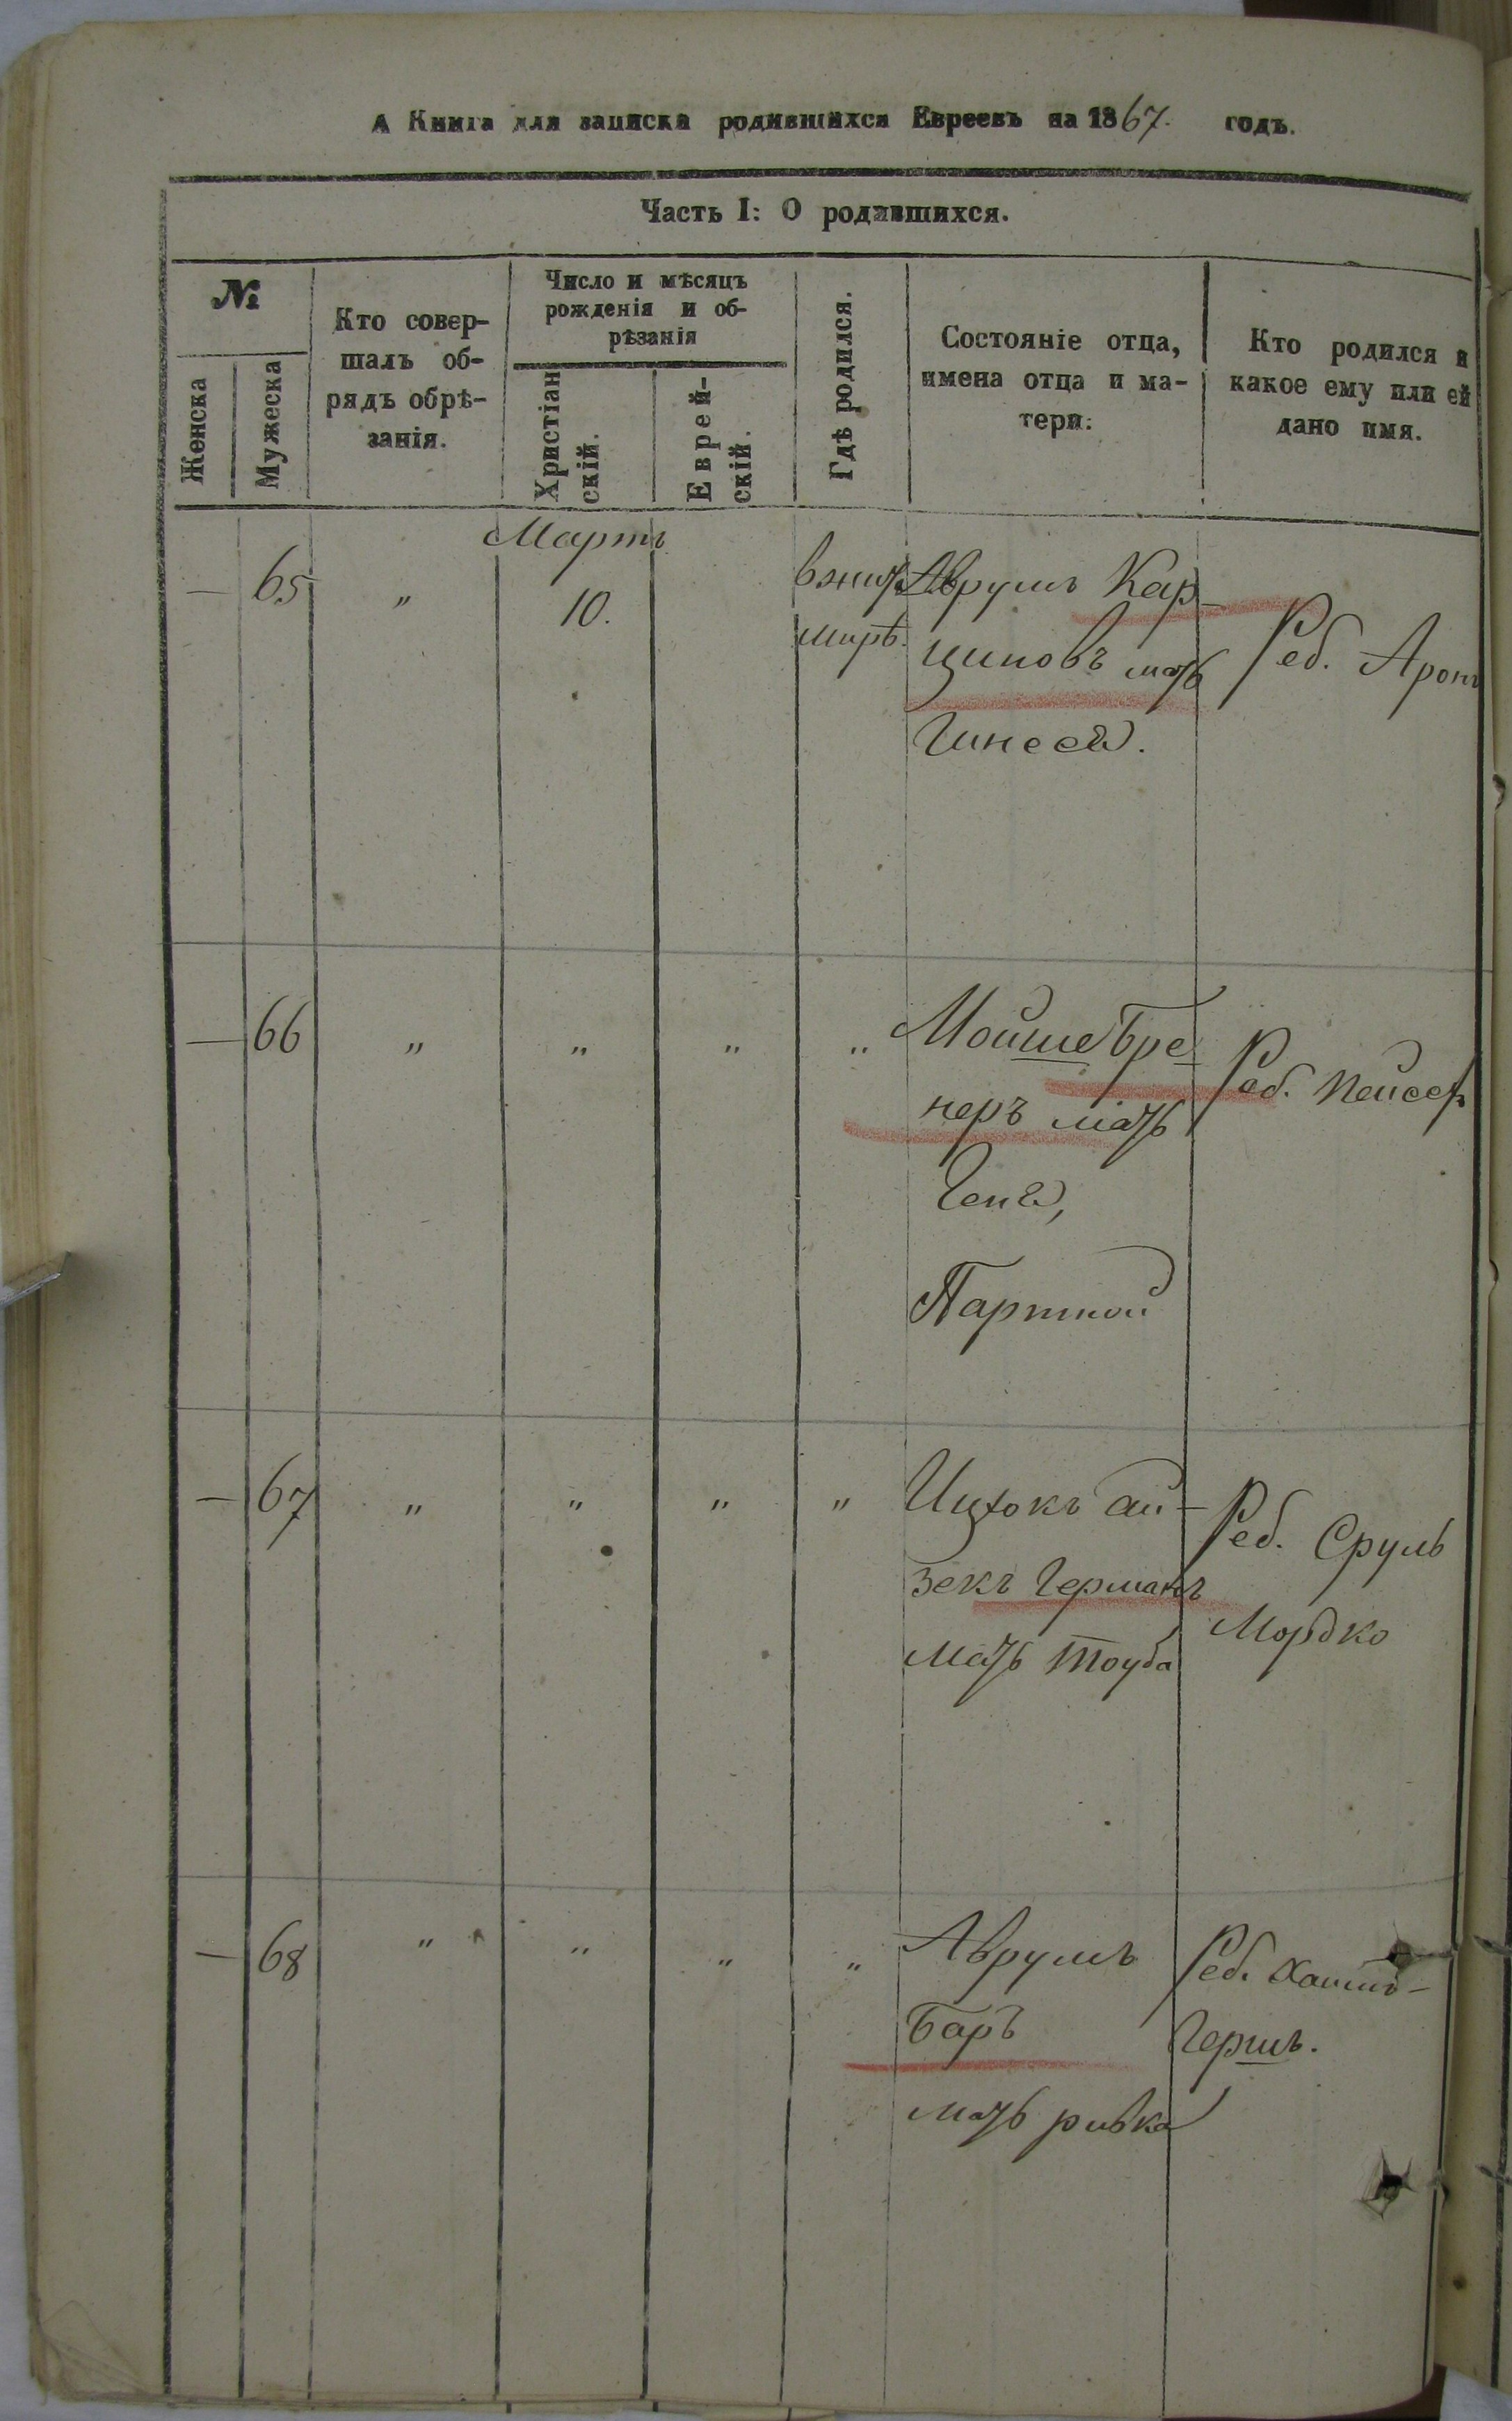 А Книга для записки родившихся Евреевъ на 1867. годъ.
Часть I: О родившихся.
№
Женска
Мужеска
Кто совер-
шалъ об-
рядъ обрѣ-
занія.
Число и мѣсяцъ
рожденія и об-
рѣзанія
Христіан
скій.
Еврей-
скій.
Гдѣ родился.
Состояніе отца,
имена отца и ма-
тери.
Кто родился и
какое ему или ей
дано имя.
Мартъ
— 65 „ 10.
мирѣ.
Аврумъ Кар-
циновъ мать
Гинеся.
Реб. Аронъ
— 66 „ „ „ „
Мойше Бре
неръ мать
Геня,
Партной
Реб. Пейсех
— 67 „ „ „ „
Ицхокъ ай-
зекъ Германъ
мать Тоуба
Реб. Сруль
Мордко
— 68 „ „ „ „
Аврумъ
Баръ
мать ривка
Реб. Хаимъ-
Гершъ.